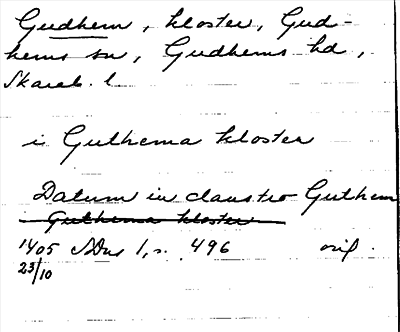 Gudhem, kloster, Gud-
hems sn, Gudhems hd,
Skarab. l
i Guthema kloster
Datum in claustro Guthem
i Guthema kloster
1405 SDns 1, s. 496 orig.
23/10